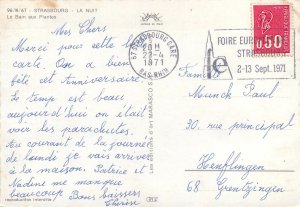 96/8/67 - STRASBOURG - LA NUIT
Le Bain aux Plantes
Mes Chers
Merci pour cette
carte. On a bien
fêté cet anniversaire.
Le temps est beau
aujourd'hui on était
voir les parachutes.
Au courant de la journée
de lundi je vais arriver
à la maison. Patrice et
Nadine me manque
beaucoup. Bons baisers
67 STRASBOURG GARE
20 H
22-4
1971
BAS-RHIN
FOIRE EUR
STRASBOURG
2-13 Sept. 1971
0,50
Famille
Munck Paul
30, rue principale
Henflingen
68 Grentzingen
reproduction interdite